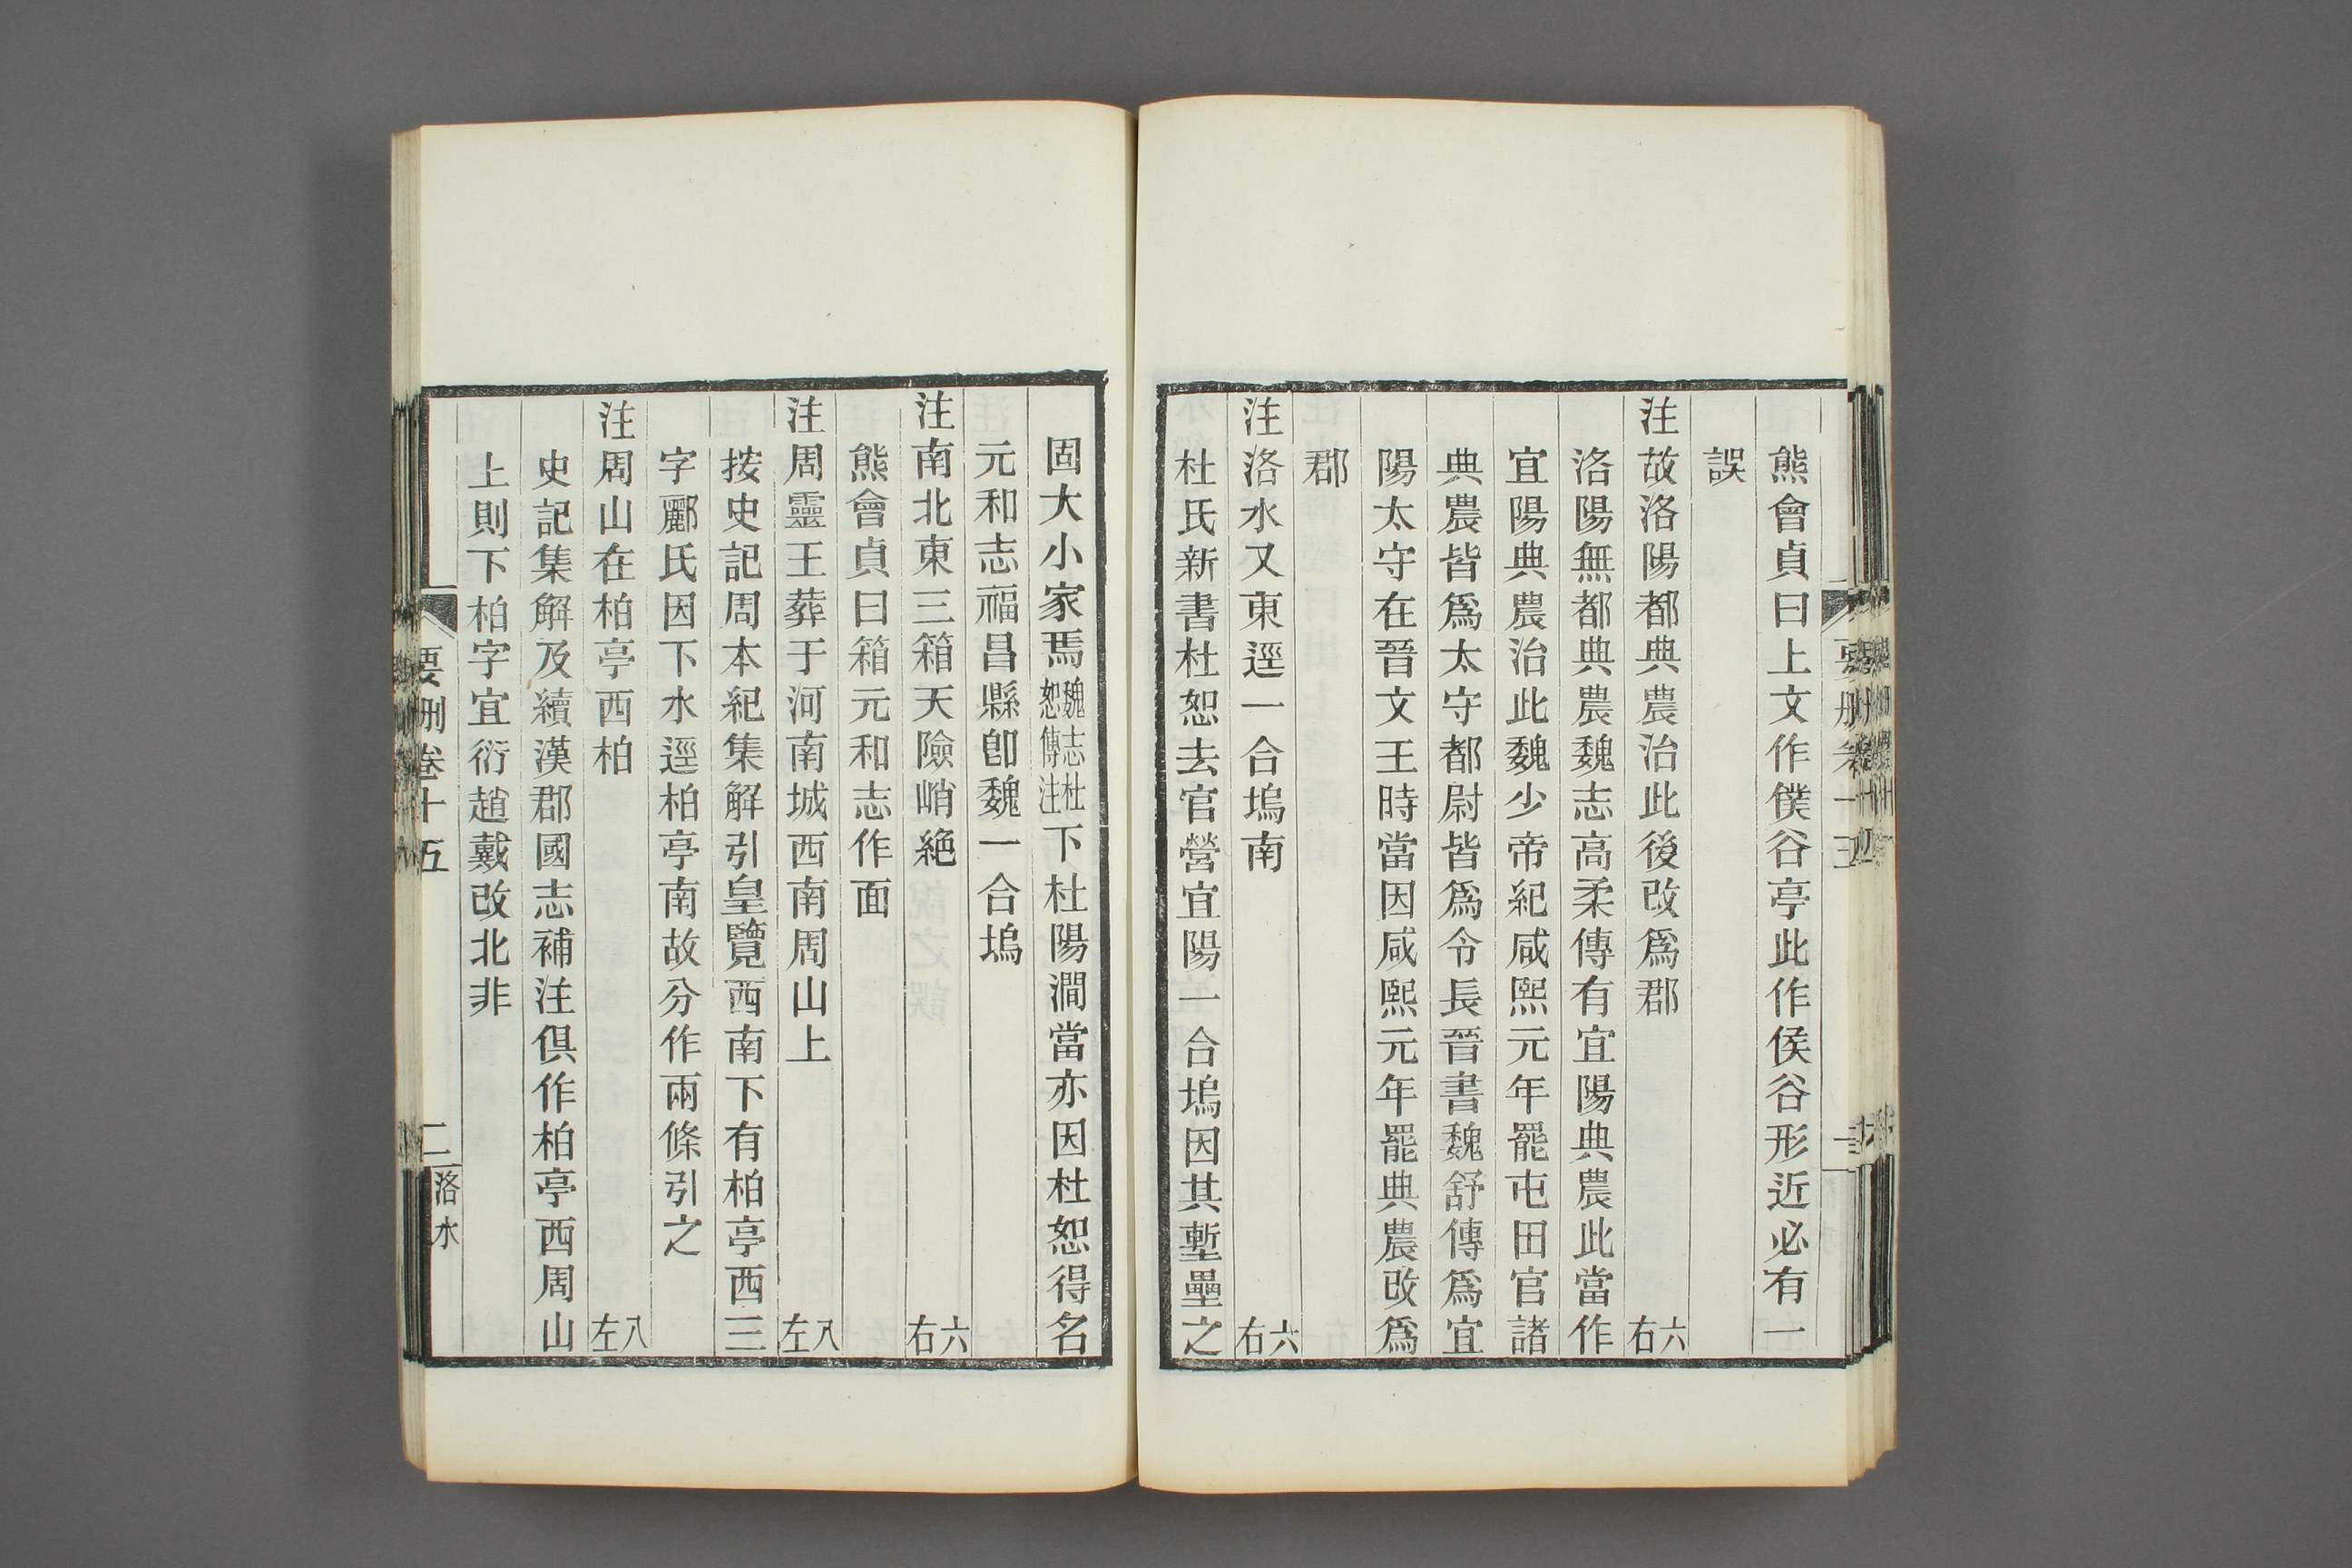 熊會貞曰上文作僕谷亭此作侯谷形近必有一
誤
注故洛陽都典農治此後改爲郡 六右
洛陽無都典農魏志高柔傳有宜陽典農此當作
宜陽典農治此魏少帝紀咸熙元年罷屯田官諸
典農皆爲太守都尉皆爲令長晉書魏舒傳爲宜
陽太守在晉文王時當因咸熙元年罷典農改爲
郡
注洛水又東逕一合塢南 六右
杜氏新書杜恕去官營宜陽一合塢因其塹壘之
固大小家焉魏志杜恕傳注下杜陽澗當亦因杜恕得名
元和志福昌縣卽魏一合塢
注南北東三箱天險峭絶 六右
熊會貞曰箱元和志作面
注周靈王葬于河南城西南周山上 八左
按史記周本紀集解引皇覽西南下有柏亭西三
字酈氏因下水逕柏亭南故分作兩條引之
注周山在柏亭西柏 八左
史記集解及續漢郡國志補注俱作柏亭西周山
上則下柏字宜衍趙戴改北非
要刪卷十五 二 洛水